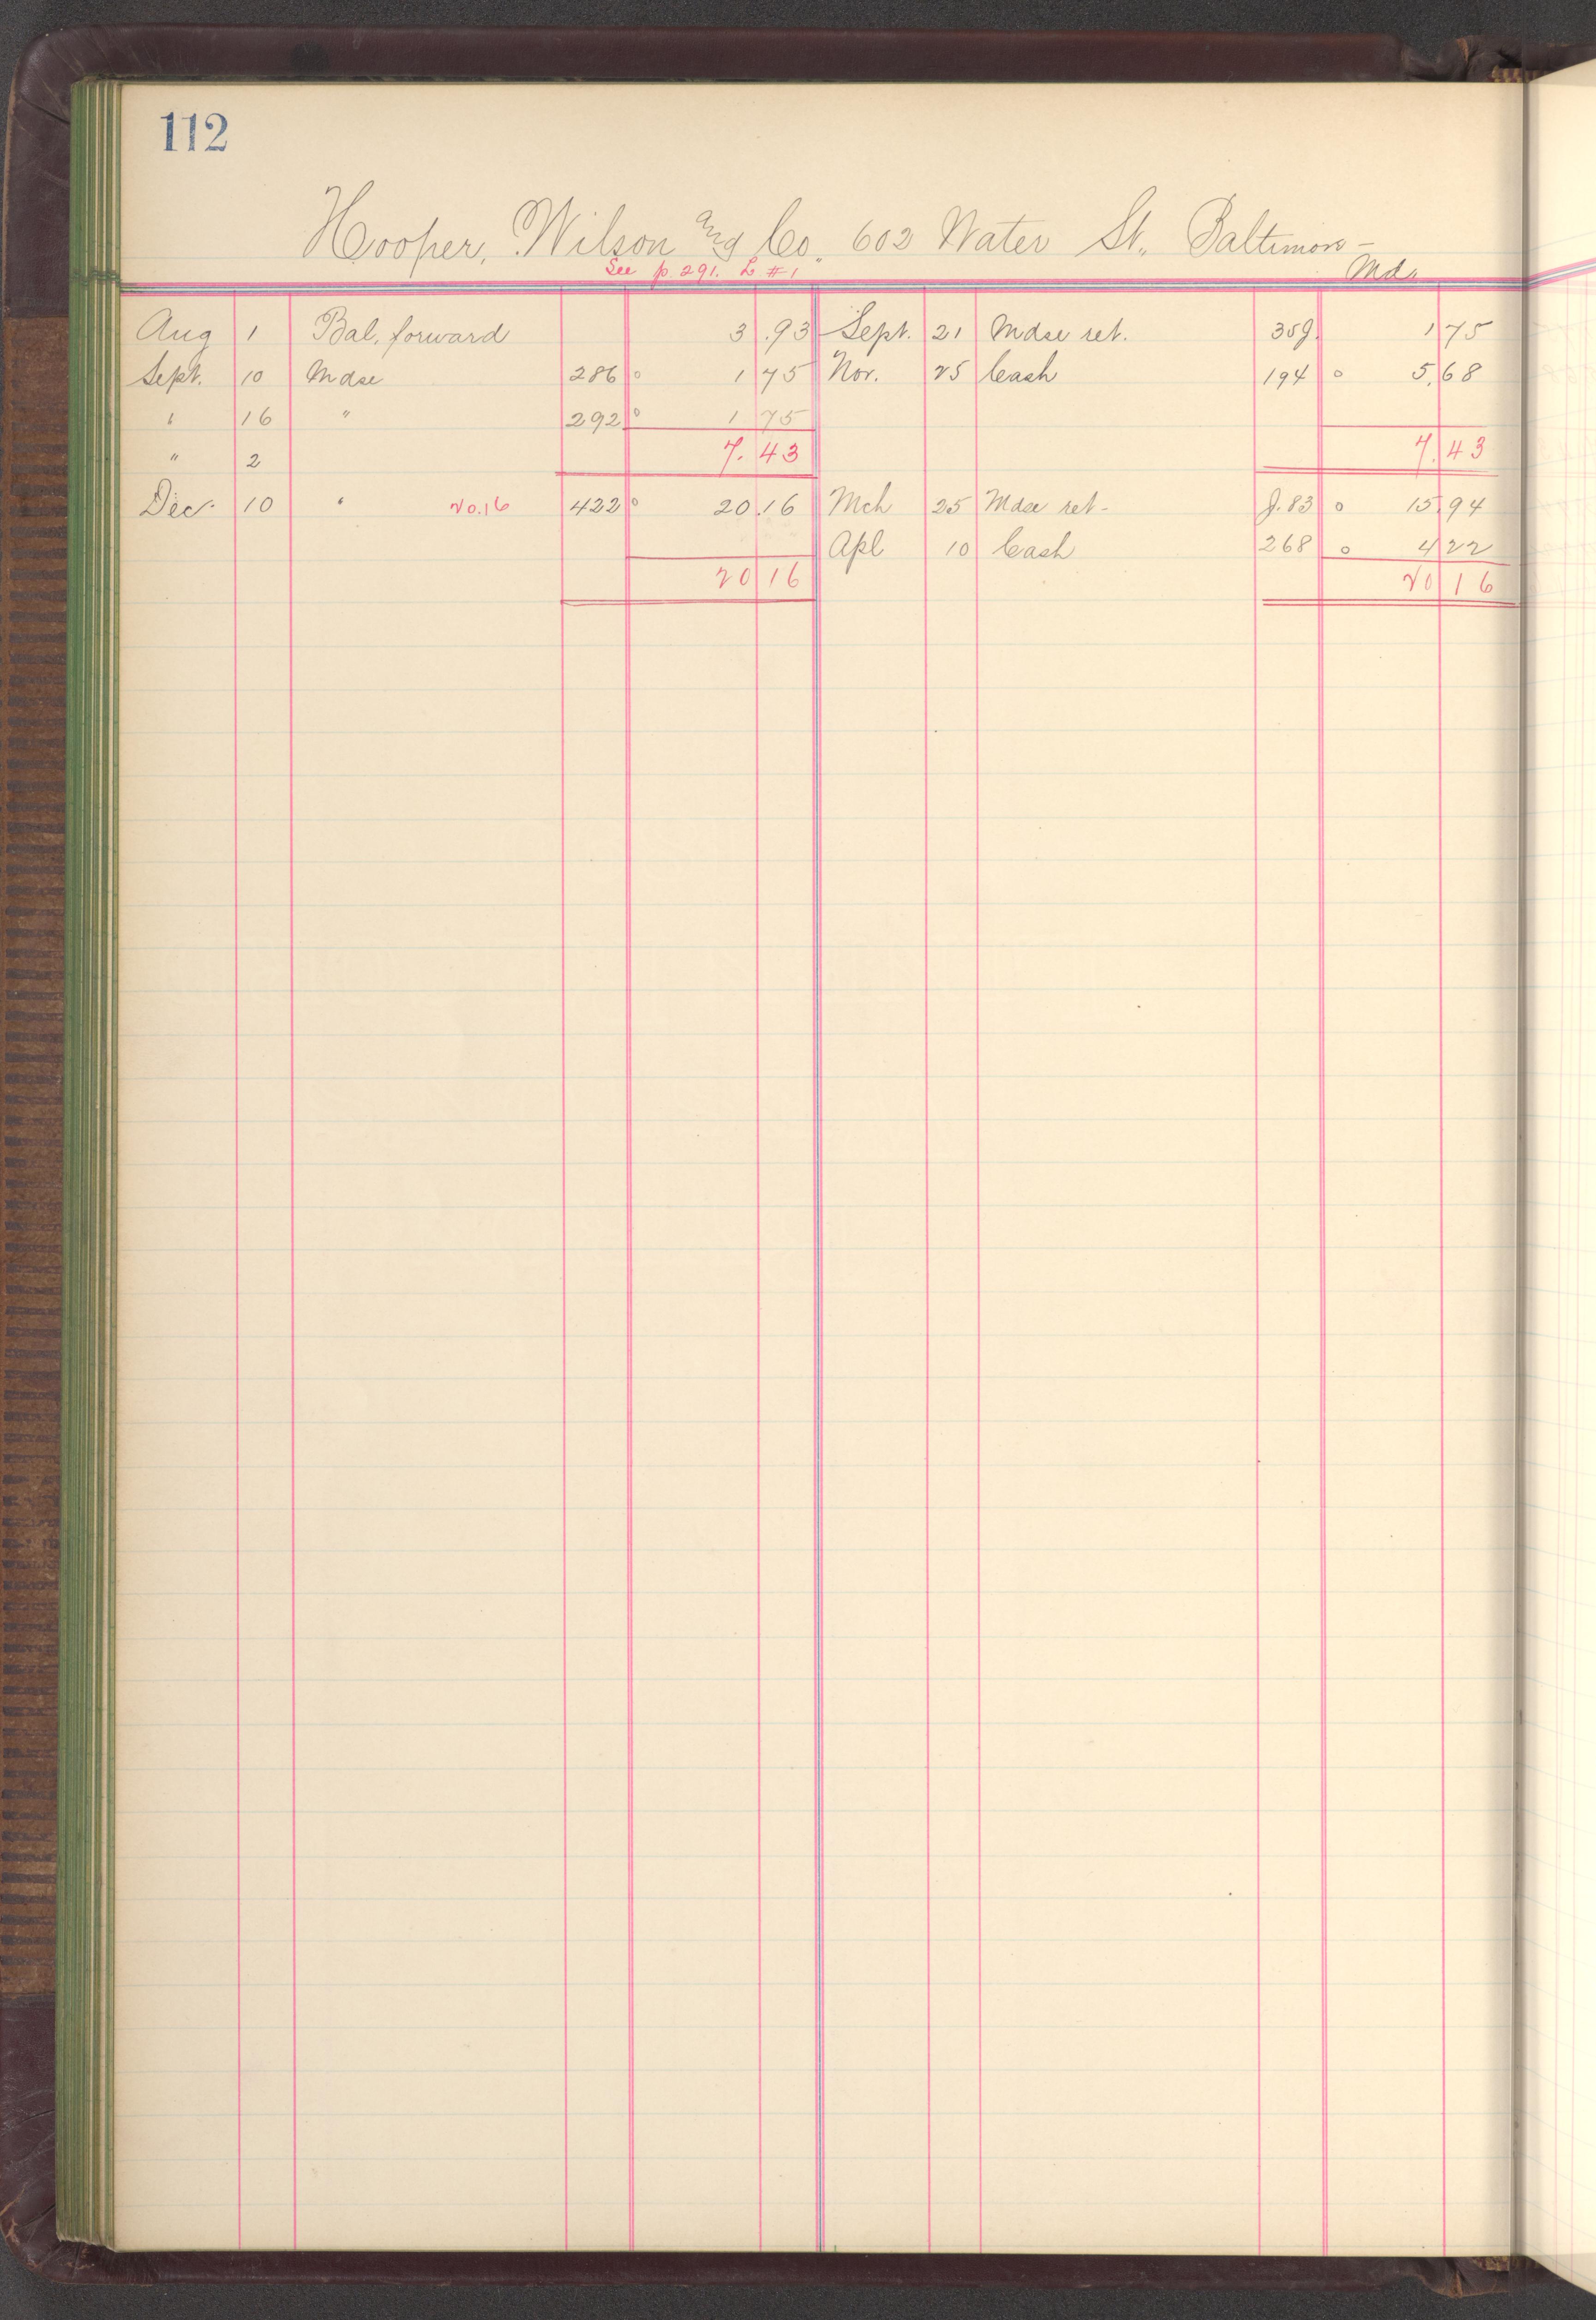 112
Hooper, Wilson Mfg Co. 602 Water St., Baltimore -
See p 291. L #1 Md.
Aug 1 Bal, forward 3.93 Sept. 21 Mdse ret. 35J. 1 75
Sept. 10 Mdse 286 o 1 75 Nov. 25 Cash 194 o 5.68
" 16 " 292 o 1 75
" 2 7.43 7.43
Dec. 10 " 20.16 422 o 20.16 Mch 25 Mdse ret- J.83 o 15.94
Apl 10 Cash 268 o 4 22
20 16 20 16